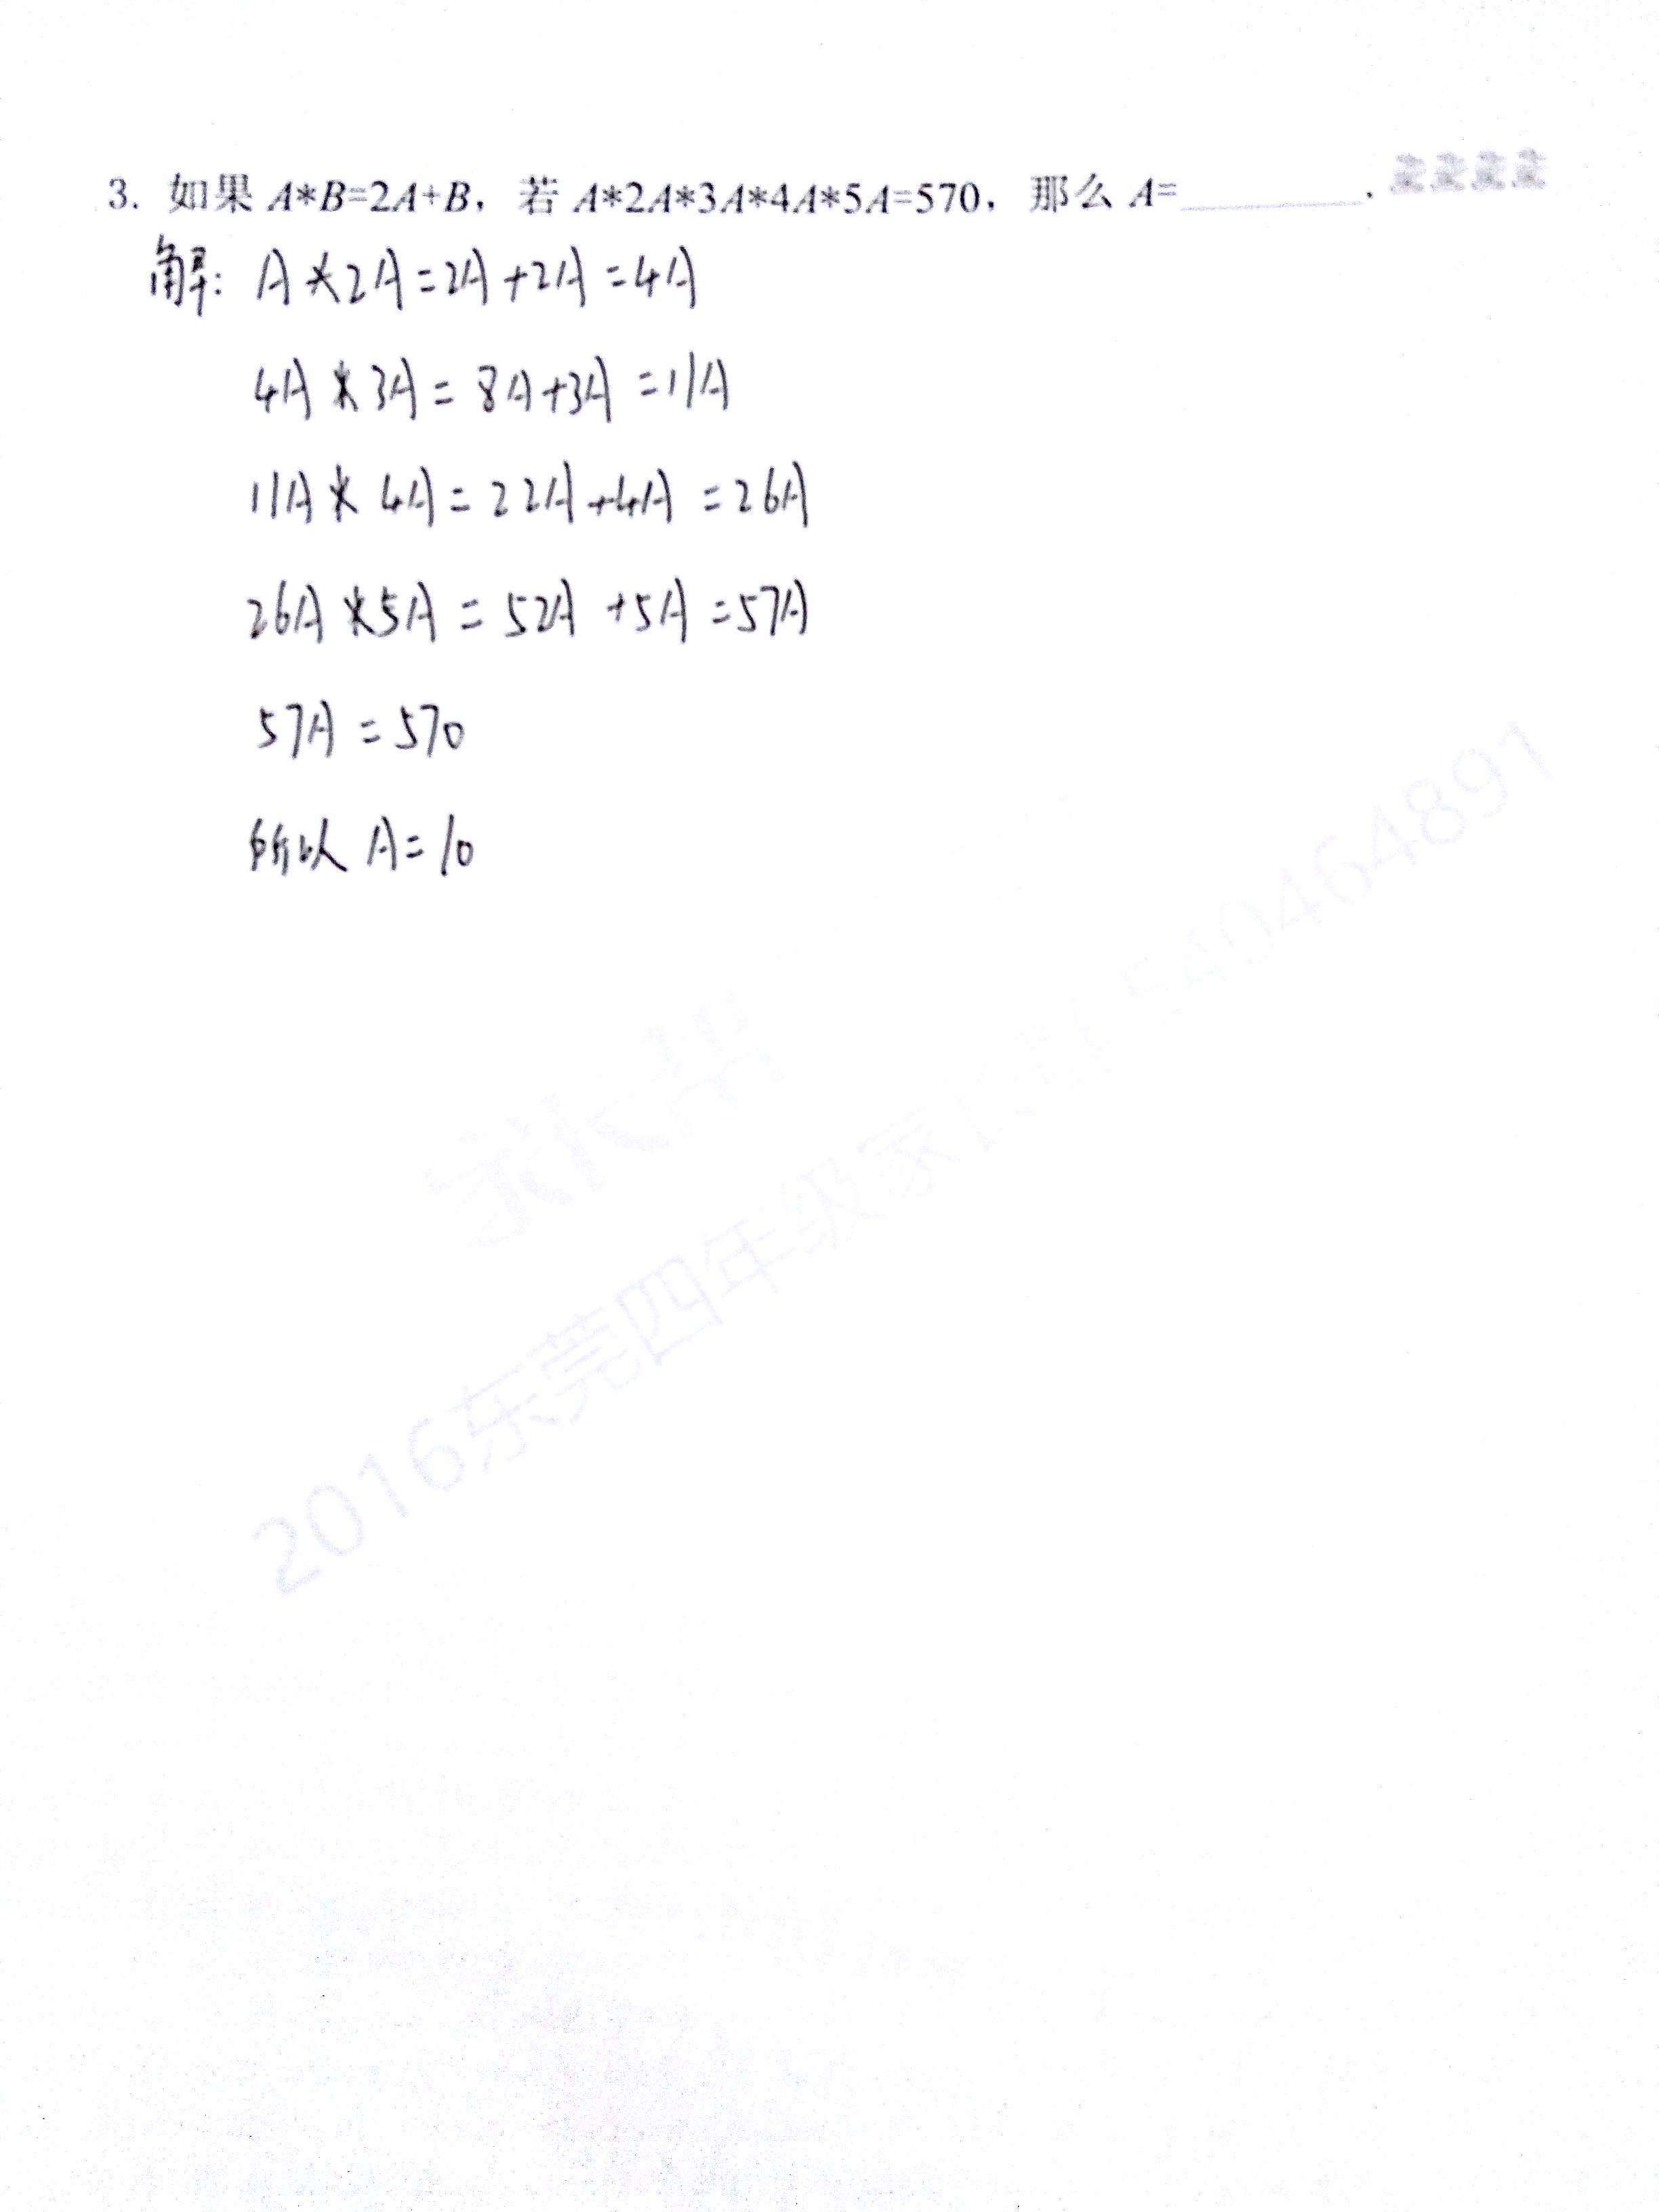 3. 如果 A*B=2A+B，若 A*2A*3A*4A*5A=570，那么 A=________.
解: A*2A=2A+2A=4A
4A*3A=8A+3A=11A
11A*4A=22A+4A=26A
26A*5A=52A+5A=57A
57A=570
所以 A=10
2016东莞四年级家
40464891